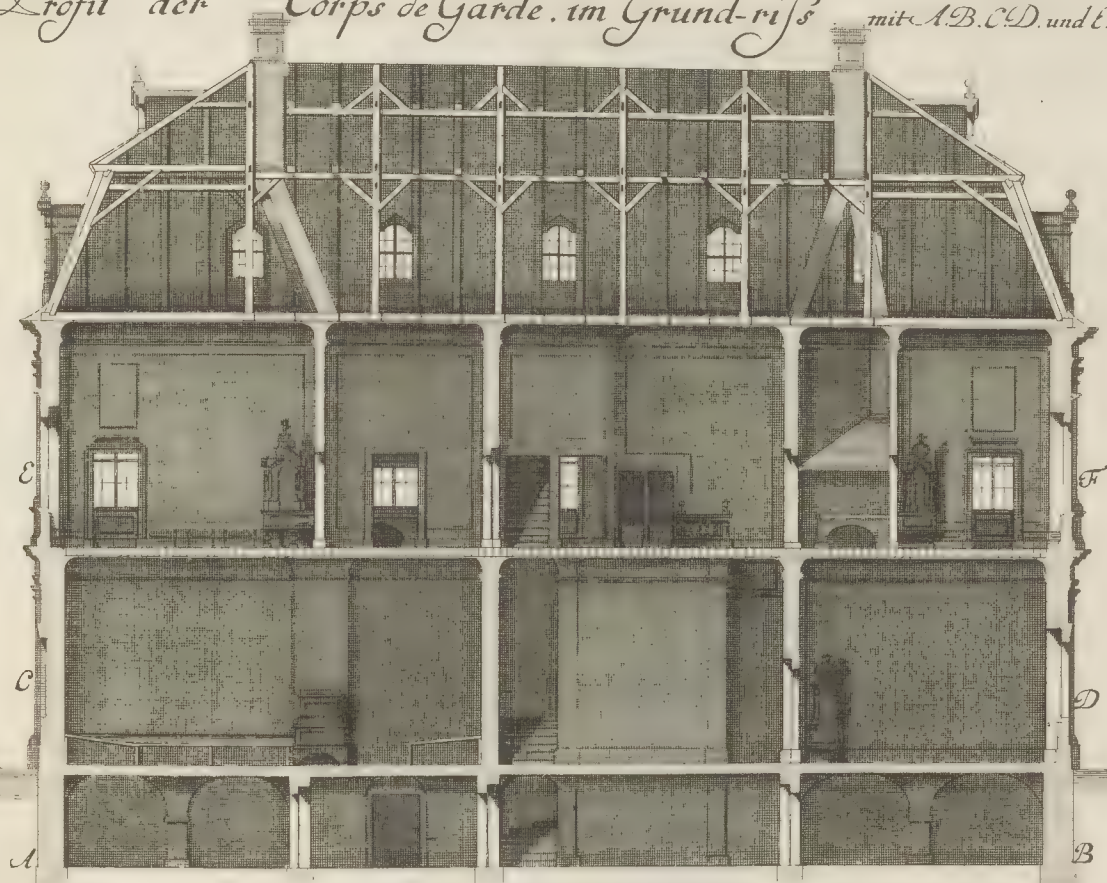 Profil der Corps de Garde. im Grund-riſs mit A.B.C.D. und E.
E F
C D
A B